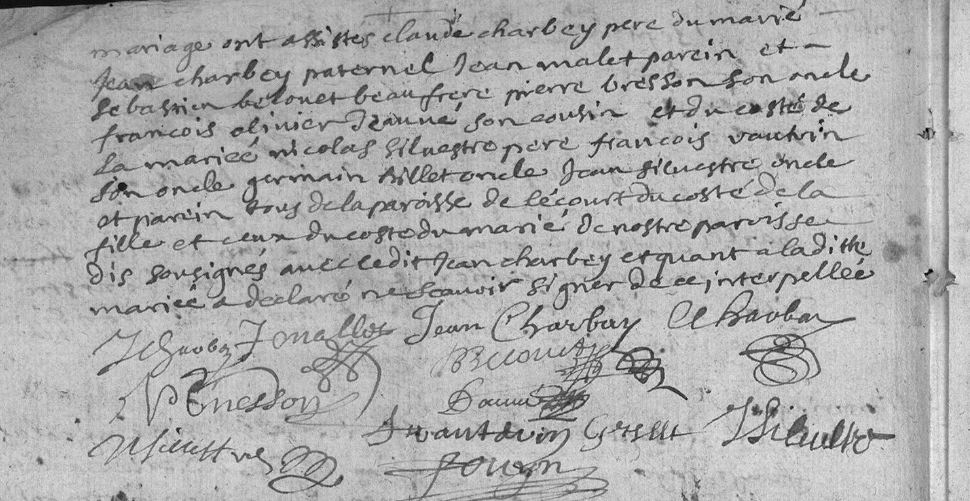 mariage ont assistés claude charbey pere du marié
Jean charbey paternel Jean malet parein et
sebastien belouet beaufrere pierre bresson son oncle
francois olivier Jeanné son cousin et du costé de
La marieé nicolas Silvestre pere francois vautrin
son oncle germain billet oncle Jean silvestre oncle
et parein tous de la paroisse de lécourt du costé de la
fille et ceux du costé du marié de nostre paroisse
dis sousignés avec ledit Jean charbey et quant a la ditte
marieé a declaré ne scavoir signer de ce interpelleé
J Charbey J mallet Jean Charbey C Charbey
Belouet
P Bresson
F vautrin G billet J Silvestre
N Silvestre